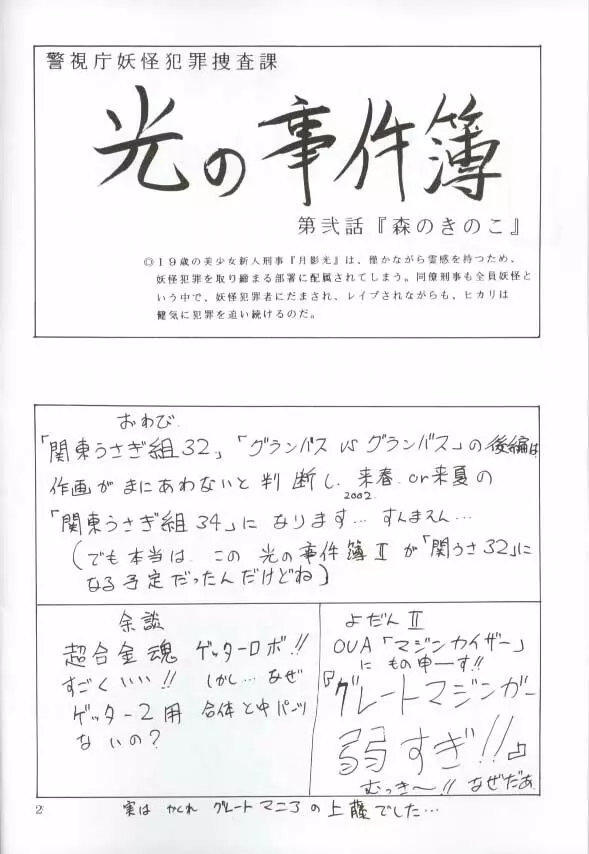 警視庁妖怪犯罪捜査課
光の事件簿
第弐話『森のきのこ』
◎19歳の美少女新人刑事『月影光』は、僅かながら霊感を持つため、
妖怪犯罪を取り締まる部署に配属されてしまう。同僚刑事も全員妖怪と
いう中で、妖怪犯罪者にだまされ、レイプされながらも、ヒカリは
健気に犯罪を追い続けるのだ。
おわび
「関東うさぎ組32」「グランバス VS グランバス」の後編は
作画がまにあわないと判断し、来春 or 来夏の
2002
「関東うさぎ組34」になります…すんまえん…
(でも本当は この 光の事件簿Ⅱが「関うさ32」に
なる予定だったんだけどね)
余談
超合金魂 ゲッターロボ!!
すごくいい!! しかし…なぜ
ゲッター2用 合体と中パーツ
ないの?
よだんⅡ
OVA「マジンカイザー」
にもの申ーす!!
『グレートマジンガー
弱すぎ!!』
むっき〜!! なぜだぁ
2
実は かくれ グレートマニアの上藤でした…